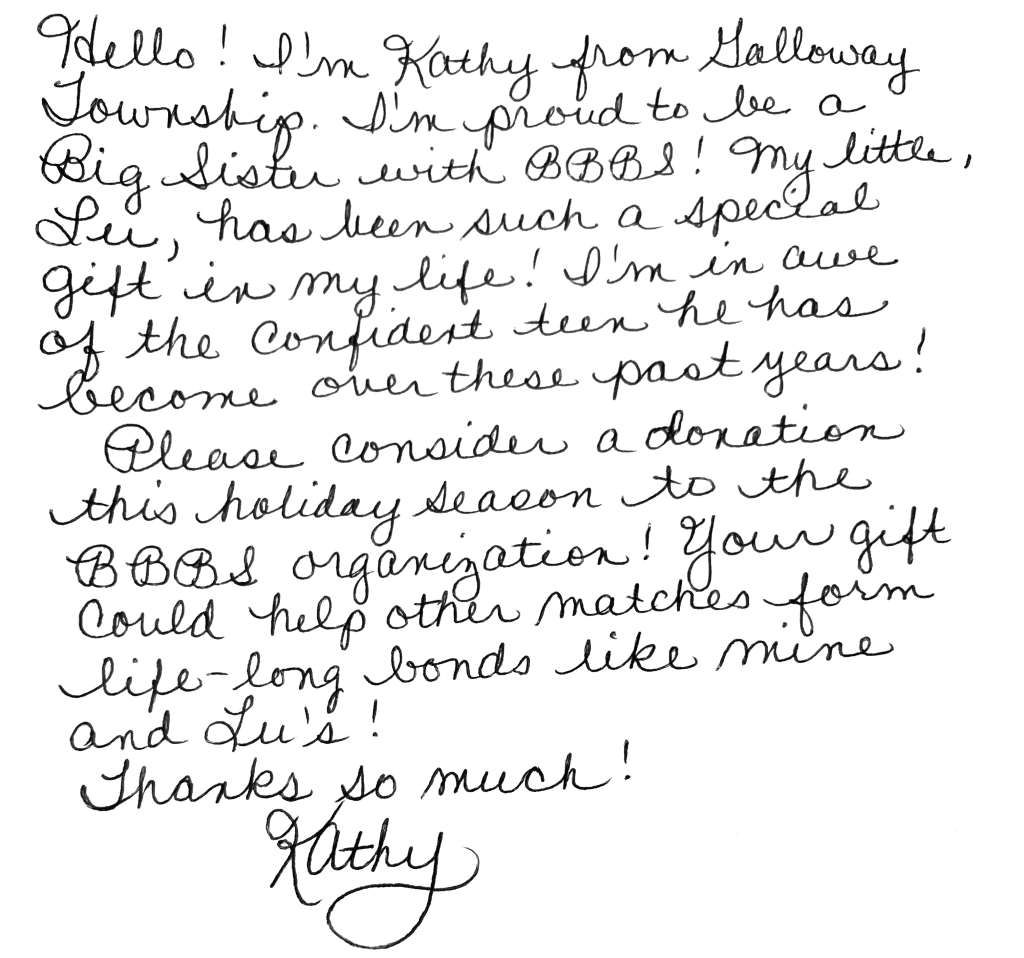 Hello! I'm Kathy from Galloway
Township. I'm proud to be a
Big Sister with BBBS! My little,
Lu, has been such a special
gift in my life! I'm in awe
of the confident teen he has
become over these past years!
Please consider a donation
this holiday season to the
BBBS organization! Your gift
could help other matches form
life-long bonds like mine
and Lu's!
Thanks so much!
Kathy